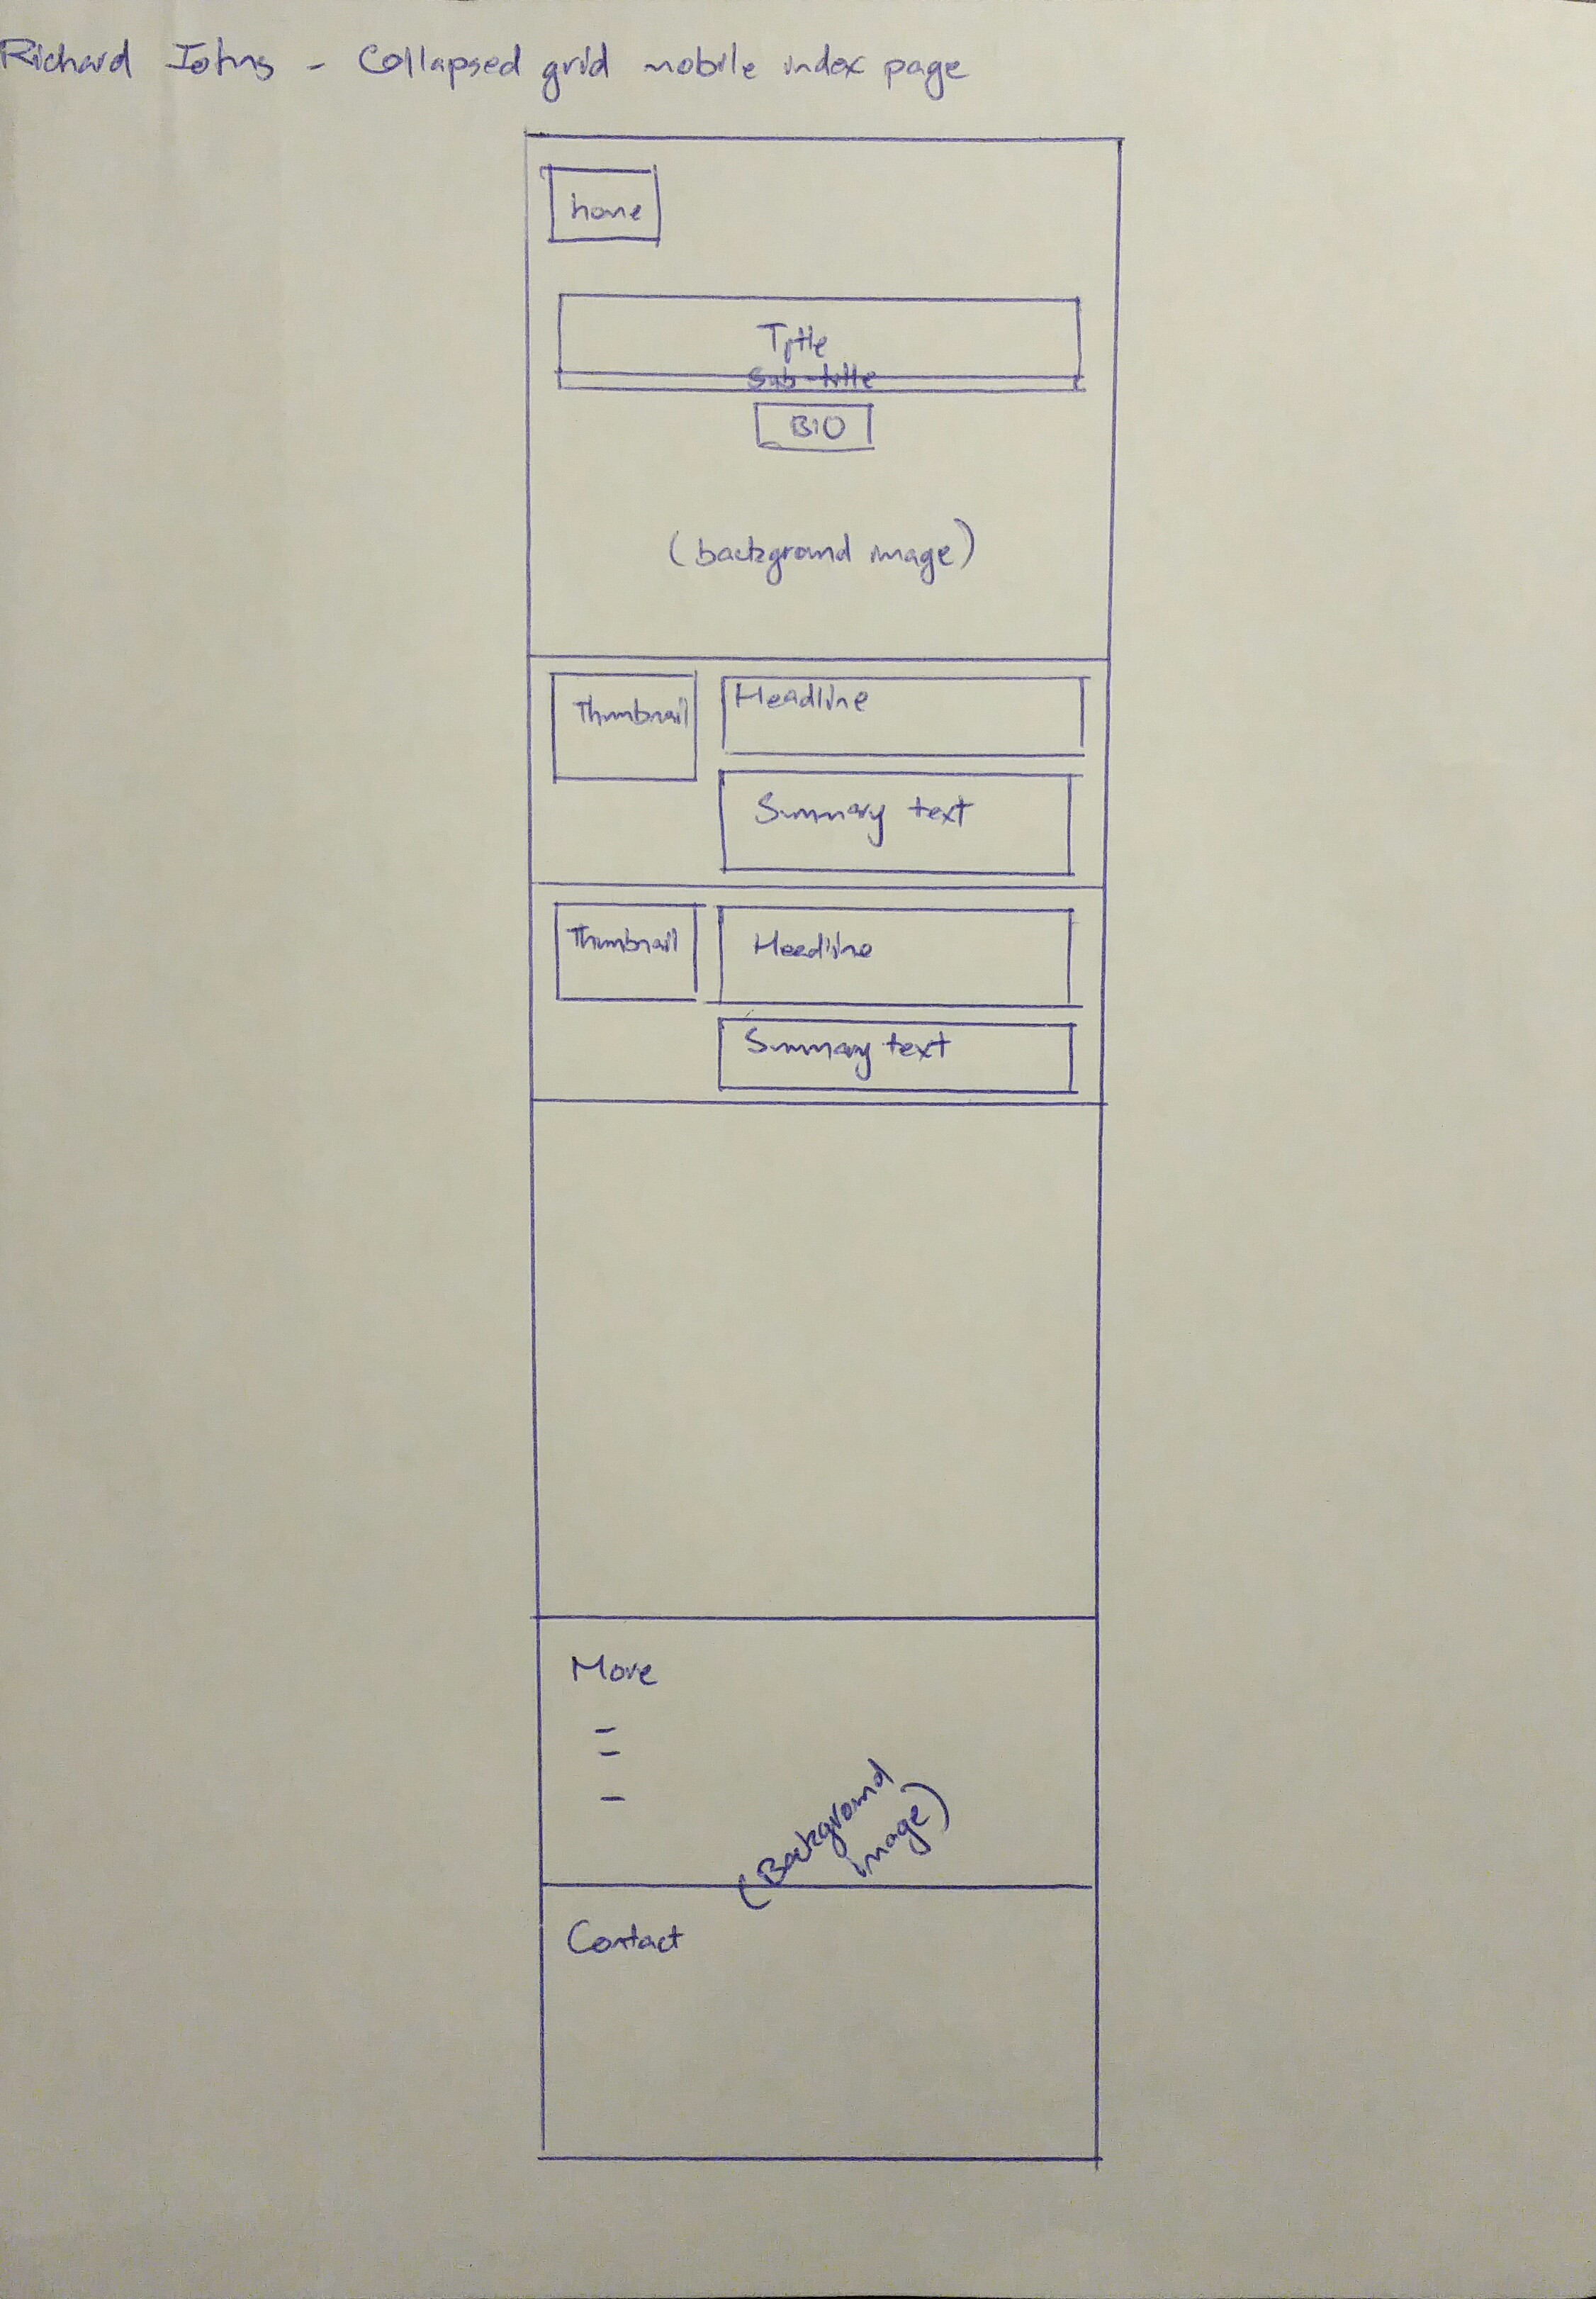 Richard Johns - Collapsed grid mobile index page
home
Title
Sub-title
BIO
(background image)
Thumbnail
Headline
Summary text
Thumbnail
Headline
Summary text
More
(Background
image)
Contact